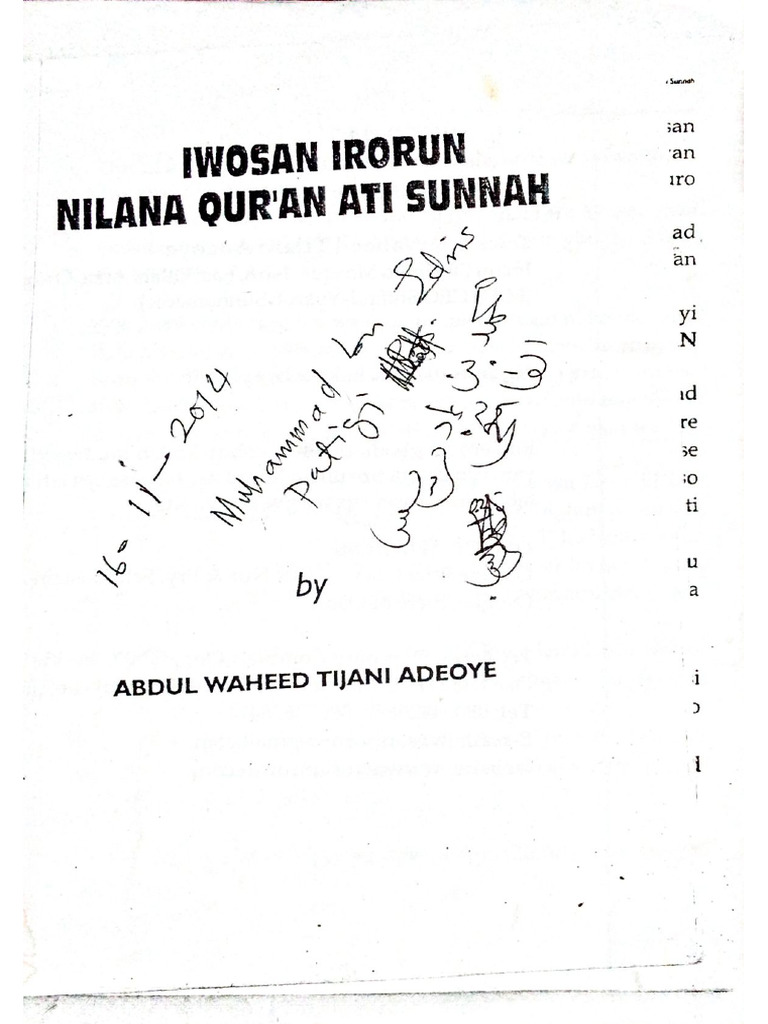 Sunnah
IWOSAN IRORUN
NILANA QUR'AN ATI SUNNAH
16-11-2014
Muhammad bn Edris
Patigi
by
ABDUL WAHEED TIJANI ADEOYE
san
an
iro
ad
an
yi
N
id
re
se
so
ti
u
a
i
d